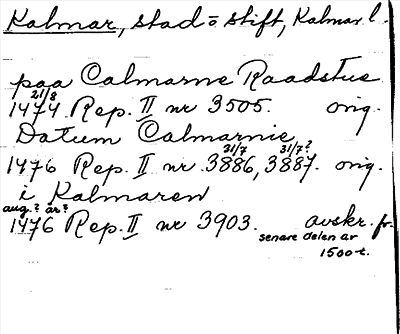 Kalmar, stad o stift, Kalmar l.
paa Calmarne Raadstue
21/8
1474 Rep. II nr 3505. orig.
Datum Calmarnie
31/7 31/7?
1476 Rep. II nr 3886, 3887. orig.
i Kalmaren
aug.? år?
1476 Rep. II nr 3903. avskr. fr.
senare delen av
1500-t.